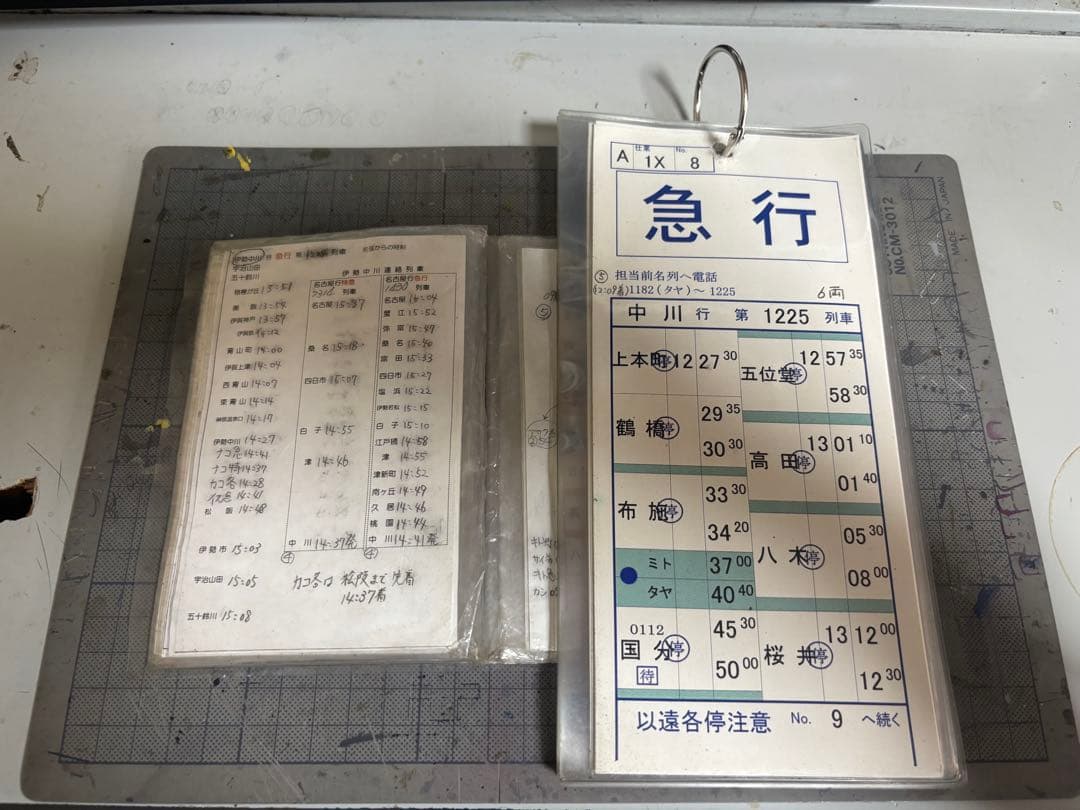 伊勢中川 行 急行 第 列車 名張からの時刻
宇治山田
五十鈴川
伊勢中川連絡列車
名古屋行特急
列車
名古屋行急行
列車
桔梗が丘
名古屋 15:37
名古屋 16:04
蟹江 15:52
伊賀神戸 13:57
弥富 15:47
青山町 14:00
桑名 15:18
桑名 15:40
伊賀上津 14:04
富田 15:33
西青山 14:07
四日市 15:07
四日市 15:27
東青山 14:14
塩浜 15:22
榊原温泉口 14:17
伊勢若松 15:15
伊勢中川 14:27
白子 14:55
白子 15:10
ナコ急 14:41
江戸橋 14:58
ナコ特 14:37
津 14:46
津 14:55
カコ各 14:28
津新町 14:52
イセ急 14:41
南が丘 14:49
松阪 14:48
久居 14:46
桃園 14:44
伊勢市 15:03
中川 14:37発
中川 14:41発
④
④
宇治山田 15:05
カコ各は松阪まで先着
14:37着
五十鈴川 15:08
A 仕業 1X No. 8
急行
⑤ 担当前名列へ電話
(12:09着) 1182 (タヤ) ～ 1225
6両
中川 行 第 1225 列車
上本町 停 12 27 30
鶴橋 停 29 35
30 30
布施 停 33 30
34 20
ミト 37 00
タヤ 40 40
0112
国分 停 45 30
待 50 00
五位堂 停 12 57 35
58 30
高田 停 13 01 10
01 40
八木 停 05 30
08 00
桜井 停 13 12 00
12 30
以遠各停注意 No. 9 へ続く
No.CM-3012
MADE IN JAPAN